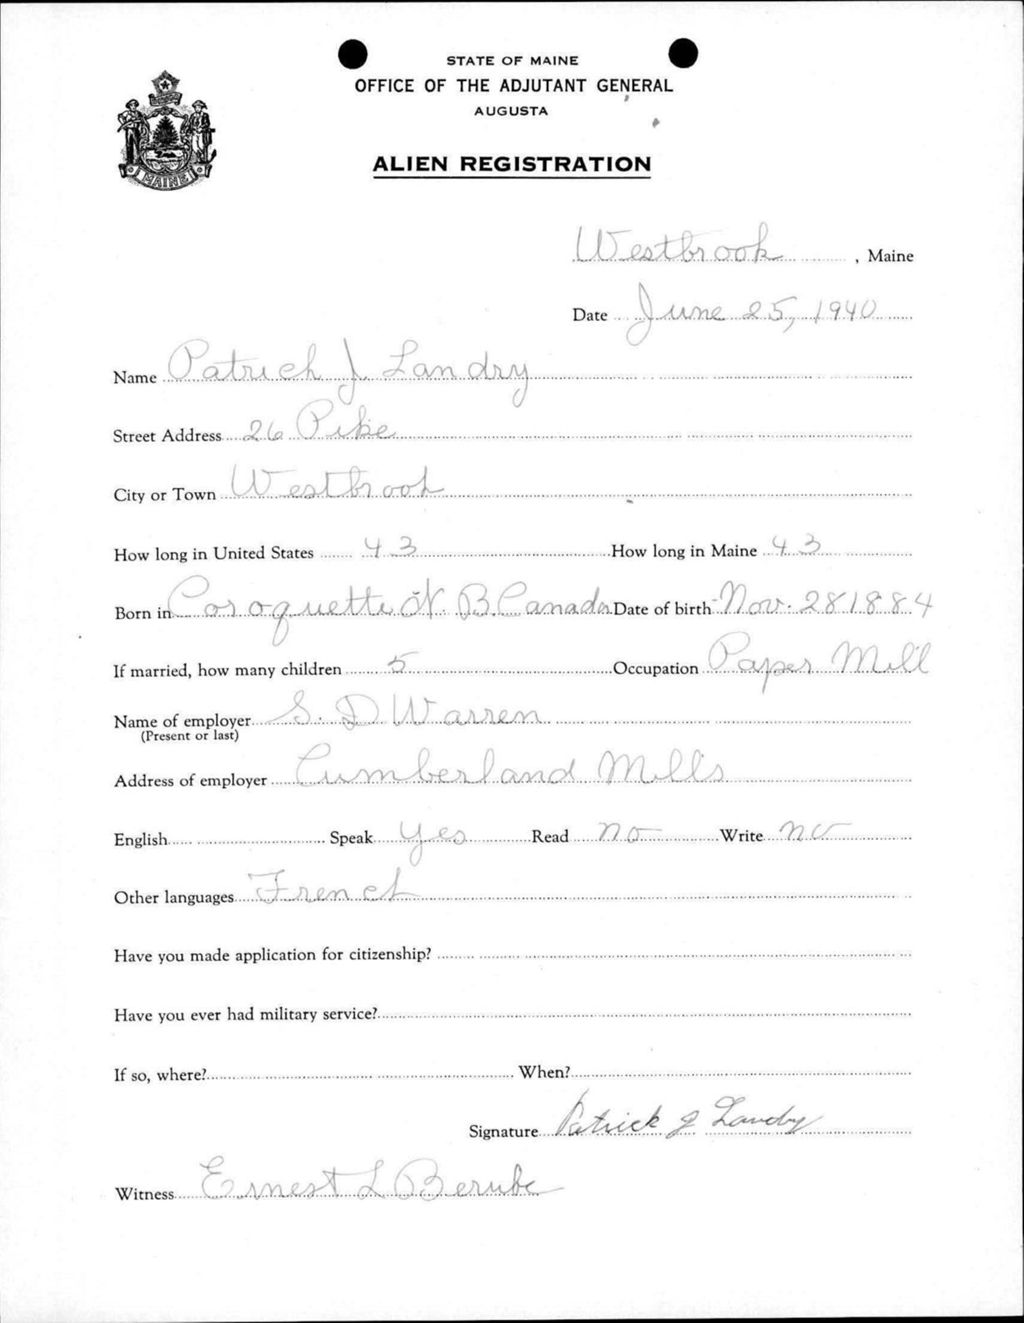 STATE OF MAINE
OFFICE OF THE ADJUTANT GENERAL
AUGUSTA
ALIEN REGISTRATION
MAINE
Westbrook, Maine
Date June 25, 1940
Name Patrick J Landry
Street Address 26 Pike
City or Town Westbrook
How long in United States 43 How long in Maine 43
Born in Coroquette N. B. Canada Date of birth Nov. 28 1884
If married, how many children 5 Occupation Paper Mill
Name of employer S. D Warren
(Present or last)
Address of employer Cumberland Mills
English Speak yes Read no Write no
Other languages French
Have you made application for citizenship?
Have you ever had military service?
If so, where? When?
Signature Patrick J Landry
Witness Ernest L Berube